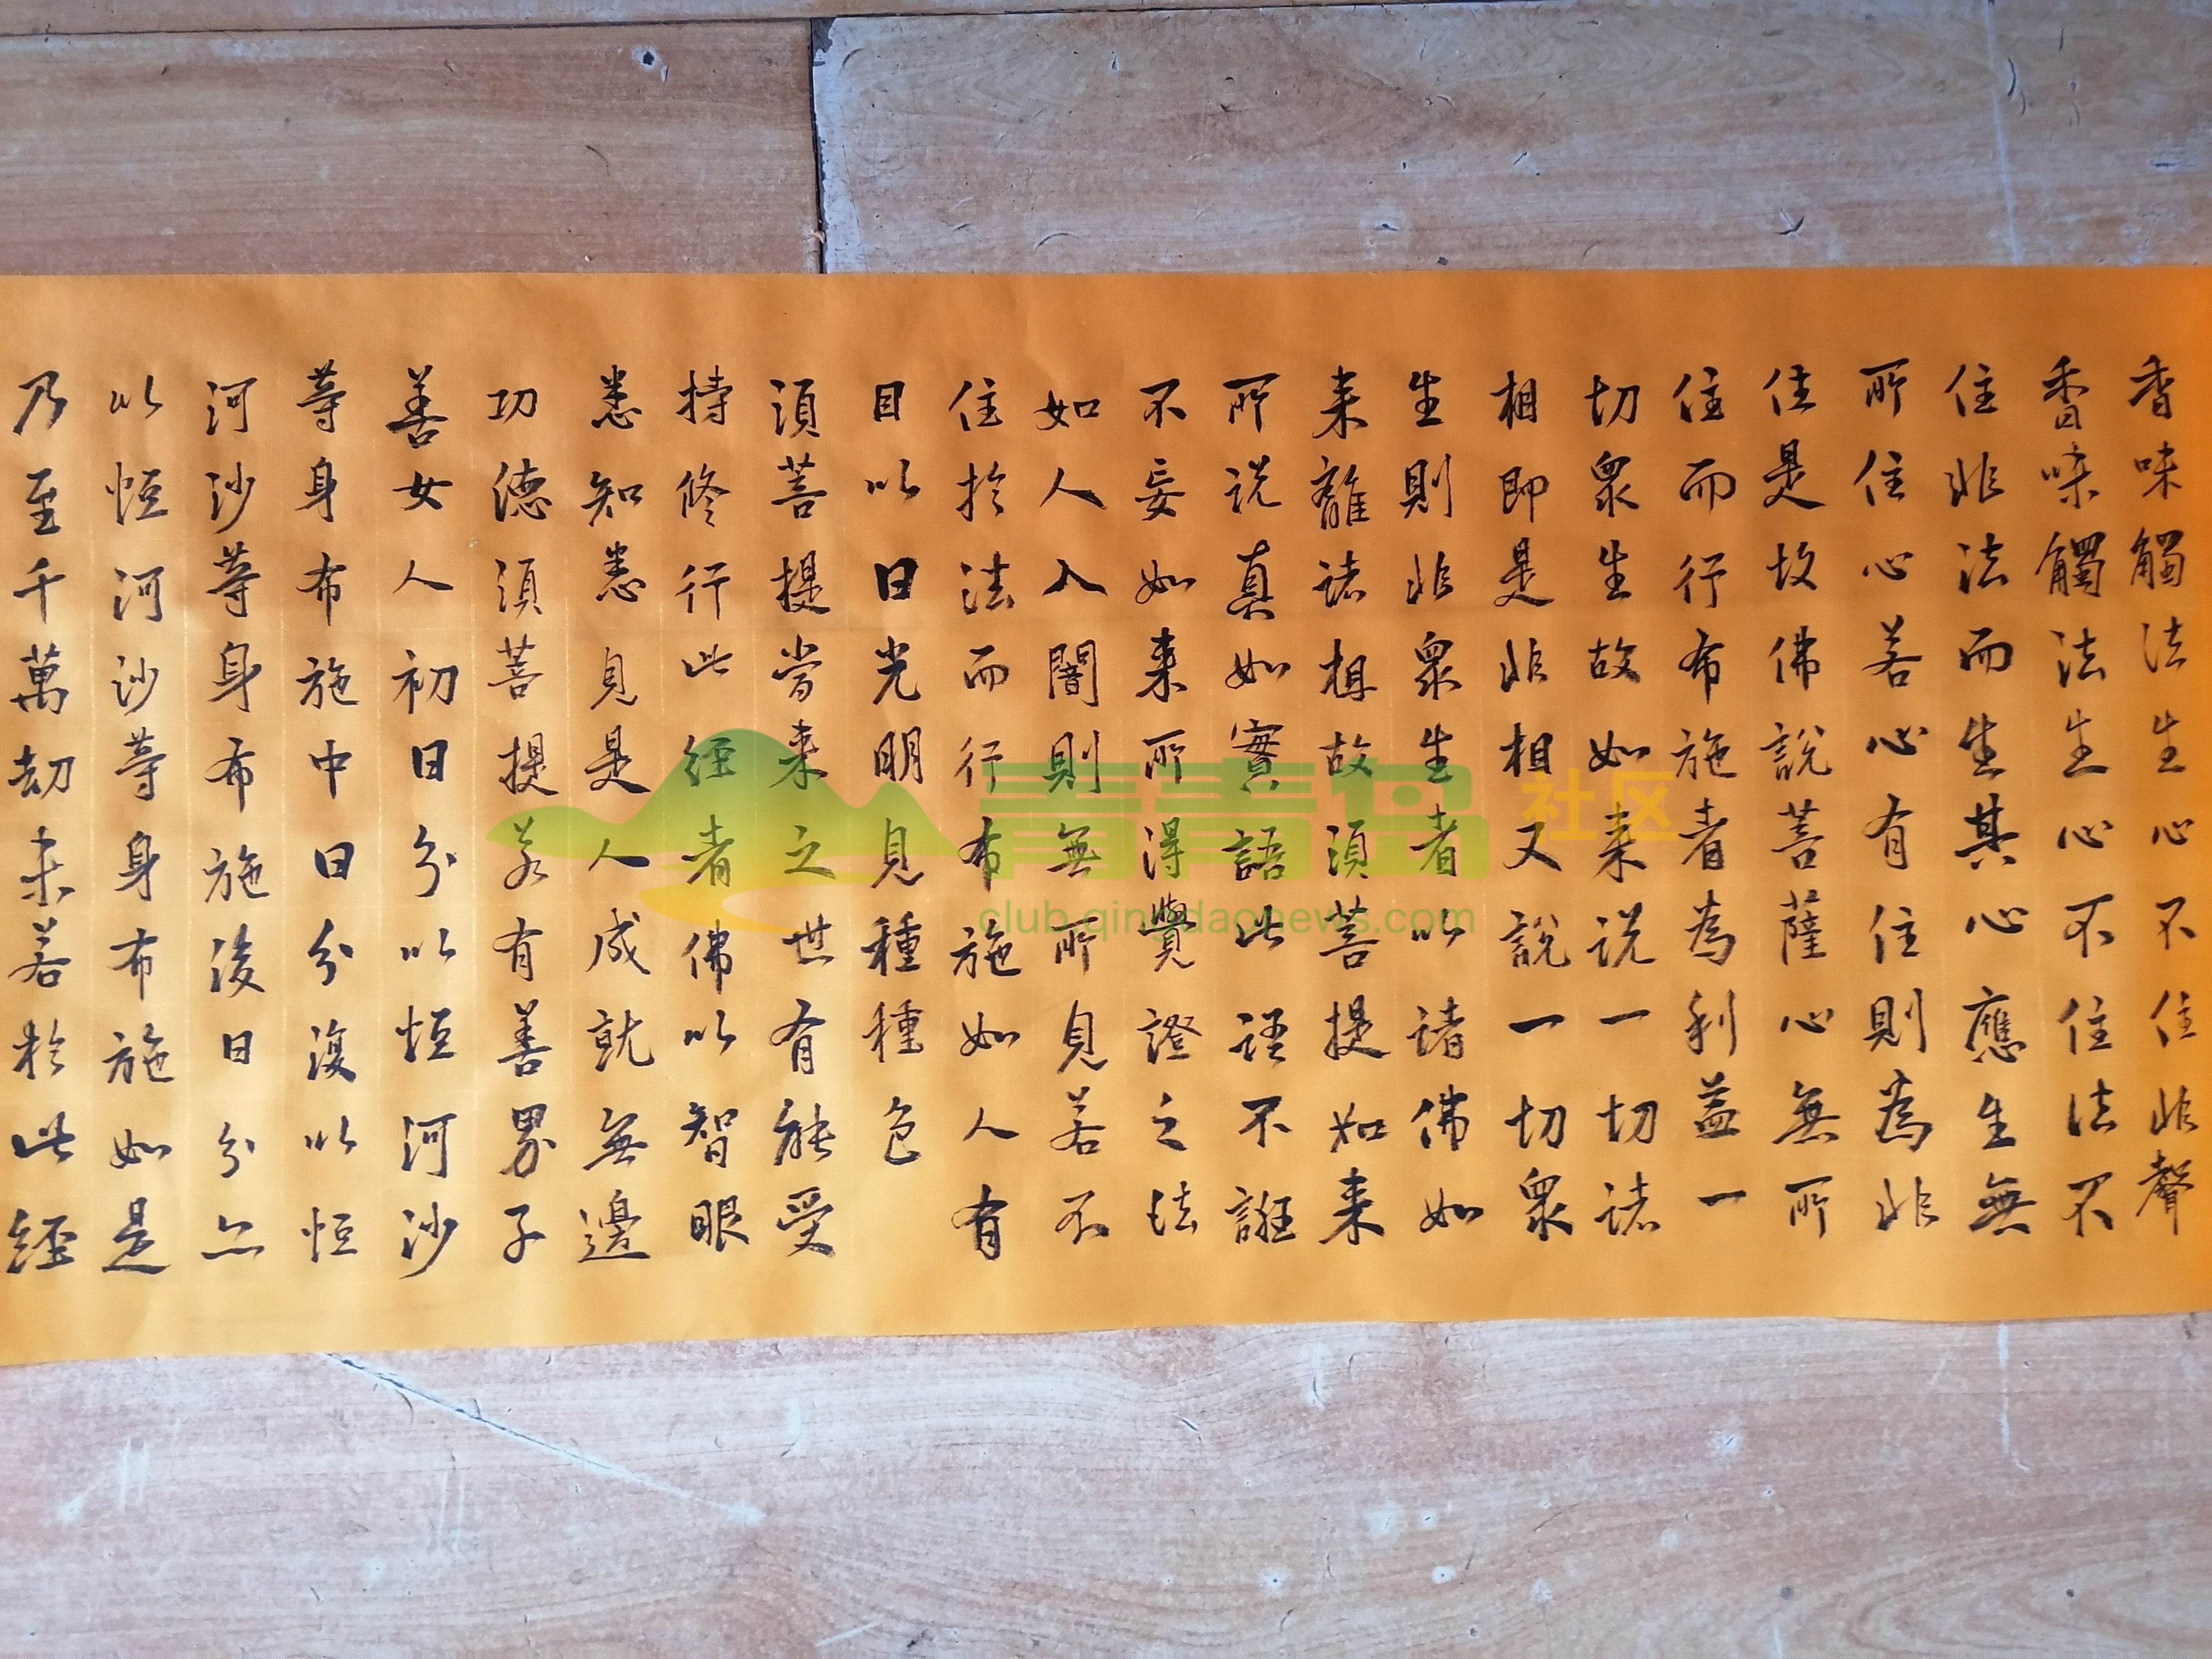 香味觸法生心不住非聲
香味觸法生心不住法不
住非法而生其心應生無
所住心若心有住則為非
住是故佛說菩薩心無所
住而行布施者為利益一
切眾生故如来说一切诸
相即是非相又說一切眾
生則非眾生者以諸佛如
来離诸相故須菩提如来
所说真如實語此語不誑
不妄如来所得覺證之法
如人入闇則無所見若不
住於法而行布施如人有
目以日光明見種種色
須菩提當来之世有能受
持修行此經者佛以智眼
悉知悉見是人成就無邊
功德須菩提若有善男子
善女人初日分以恒河沙
等身布施中日分復以恒
河沙等身布施後日分亦
以恒河沙等身布施如是
乃至千萬劫未若於此經
青青岛社区
club.qingdaonews.com